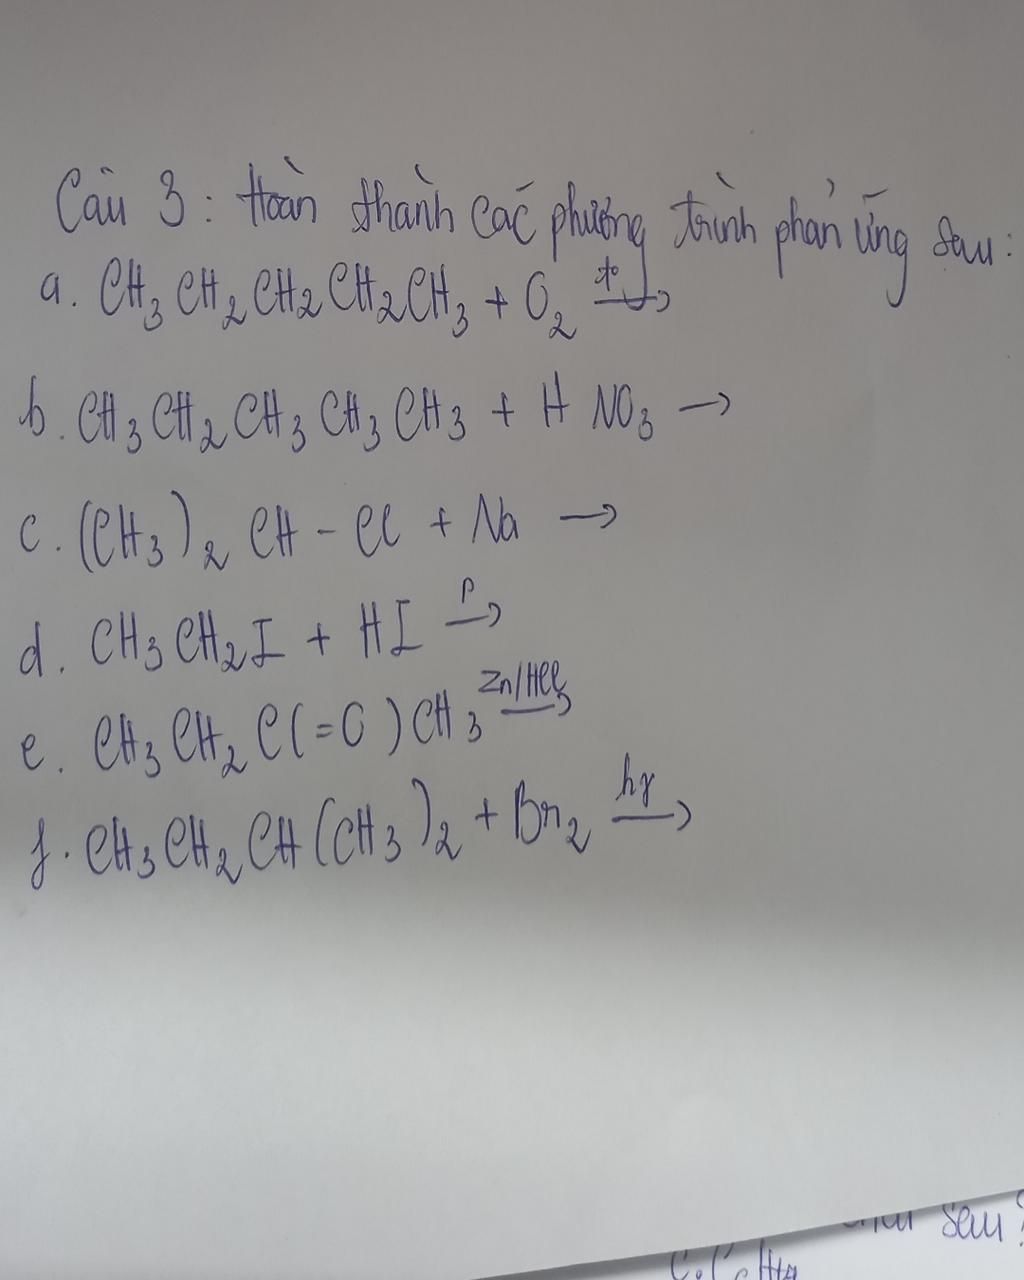 Câu 3: Hoàn thành các phương trình phản ứng sau:
a. CH₃CH₂CH₂CH₂CH₃ + O₂ t° →
b. CH₃CH₂CH₃CH₃CH₃ + HNO₃ →
c. (CH₃)₂CH - Cl + Na →
d. CH₃CH₂I + HI P →
e. CH₃CH₂C(=O)CH₃ Zn/HCl →
f. CH₃CH₂CH(CH₃)₂ + Br₂ hγ →
sau?